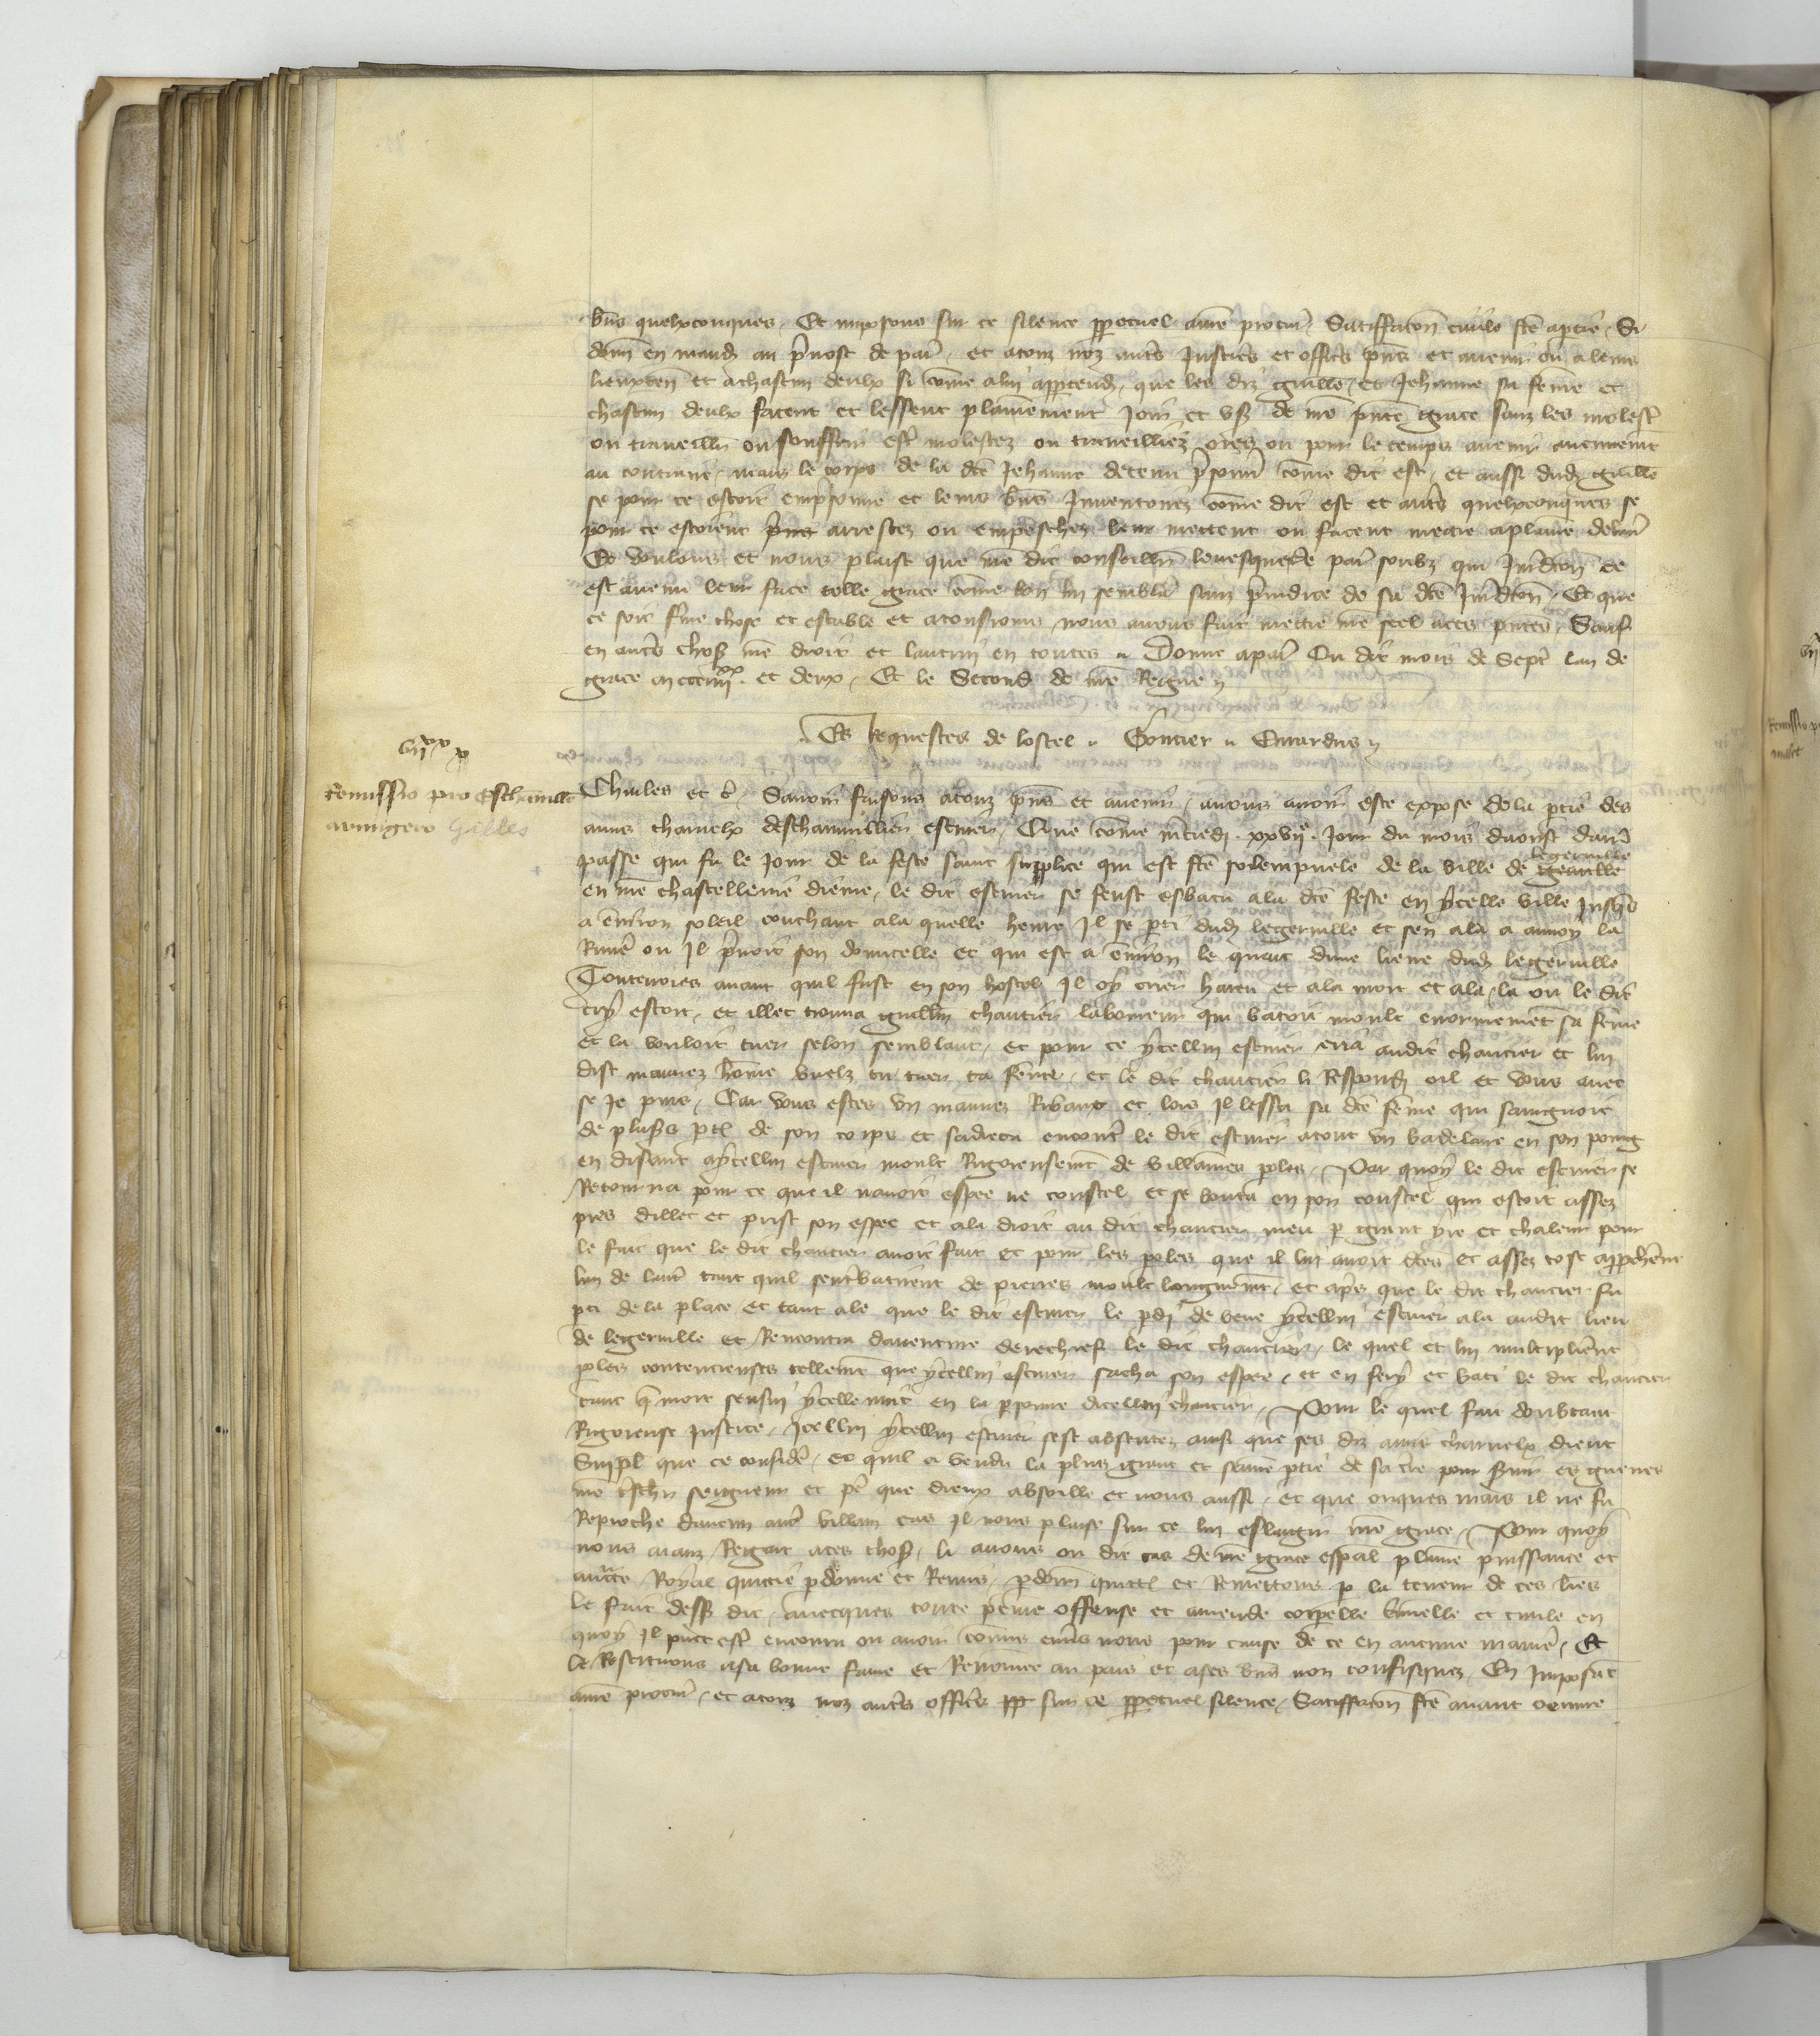 bns quelxconques. Et imposons sur ce silence ppetuel a nre procur. Satiffacon civile fte a ptie. Si
donn en mand au pvost de par. et a touz noz autres Justic et offic pns et avenir ou a leurs
lieuxten et a chascun deulx si come a lui apptend. que les diz guille. et Jehanne sa feme et
chascun deulx facent et lessent plainement joir et us de nre pnte grace sanz les molest
ou traveillier ou souffrir est molestez ou traveilliez ores ou pour le temps avenir aucunement
au contraire. mais le corps de la dte Jehanne detenu prisonn come dit est. et aussi dud guille
se pour ce estoit emprisonne et leurs bns Inventoriez come dit est et autres quelxconques se
pour ce estoient prins arrestez ou empeschez leur mettent ou facent mettre a plaine deliv
Et voulons et nous plaist que nre dit conseillier levesque de par soubz qui Juridicon ce
est avenu leur face telle grace come bon lui semblera sanz preiudice de sa dte Juridcon. Et que
ce soit ferme chose et estable et a tousiours. nous avons fait mettre nre seel a ces pntes. Sauf
en autres chos nre droit et lautrui en toutes. Donne a par Ou dit mois de Sept lan de
grace m ccc iiii xx. et deux. Et le Second de nre Regne
Es Requestes de lostel. Gontier. Evrardus
vii xx x
Remissio pro
armigero Gilles
Charles et c. Savoir faisons a touz pns et avenir. a nous avoir este expose de la ptie des
amis charnelx deschainvillier escuier. Que come mcredi. xxvii e. jour du mois daoust darr
passe qui fu le jour de la feste saint supplice qui est fte solempnele de la ville de
legerville
en nre chastellenie . le dit escuier se feust esbatu a la dte feste en ycelle ville jusqs
a environ soleil couchant a la quelle heure Il se pti dud legerville et sen ala a aunoy la
Riviere ou Il pnoit son domicille et qui est a environ le quart dune lieue dud legerville
Toutevoies avant quil fust en son hostel Il oy crier harou et a la mort et ala la ou le dit
cry estoit. et illec trouva guillin chantier laboureur qui batoit moult enormement sa feme
et la vouloit tuer selon semblant. et pour ce ycellui escuier cria audit chantier et lui
dist mauvez home vuelz tu tuer ta feme. et le dit chantier li Respond oil et vous avec
se Je puis. Car vous estes un mauvez Ribaut et lors Il lessa sa dte feme qui saingnoit
de pluss pt de son corps et sadreca encontre le dit escuier a tout un badelare en son poing
en disant a ycellui escuier moult Rigoreusement de villaines poles. Par quoy le dit escuier se
Retourna pour ce que il navoit espee ne coustel et se bouta en son hostel qui estoit assez
pres dillec et prist son espee et ala droit au dit chantier meu p grant yre et chaleur pour
le fait que le dit chantier avoit fait et pour les poles que il lui avoit dtes et assez tost approcherent
lun de lautre tant quil sentrebatirent de pierres moult longuement. et apres que le dit chantier fu
pti de la place et tant ale que le dit escuier le pdi de veue ycellui escuier ala audit lieu
de legerville et Rencontra daventure derechief le dit chantier. le quel et lui multiplierent
poles contencieuses tellement que ycellui escuier sacha son espee. et en fery et bati le dit chantier
tant q mort sensui ycelle nuit en la psonne dicellui chantier. Pour le quel fait doubtant
Rigoreuse justice. Icellui ycellui escuier sest absentez ainsi que ses diz amis charnelx dient
Suppl que ce consider. et quil a vendu la plus grant et saine ptie de sa tre pour servir es guerres
nre tschr seigneur et pere que dieux absoille et nous aussi. et que onques mais il ne fu
Reproche daucun autre villain cas Il nous plaise sur ce lui eslargir nre grace. Pour quoy
nous aianz Regart a ces chos. li avons ou dit cas de nre grace espal plaine puissance et
aucte Royal quictie pdonne et Remis. pdonn quitt et Remettons p la teneur de ces lres
le fait dess dit. avecques toute peine offense et amende corpelle crimelle et civile en
quoy Il puet est encouru ou avoir comis envrs nous pour cause de ce en aucune maniere. Et
le Restituons a sa bonne fame et Renomee au pais et a ses bns non confisquez. En Imposant
a nre procur. et a touz noz autres offic sur ce ppetuel silence. Satiffacon fte avant